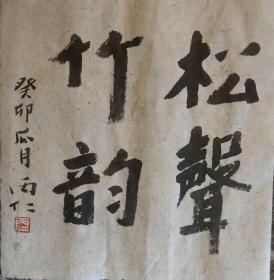 松聲
竹韵
癸卯瓜月丙仁